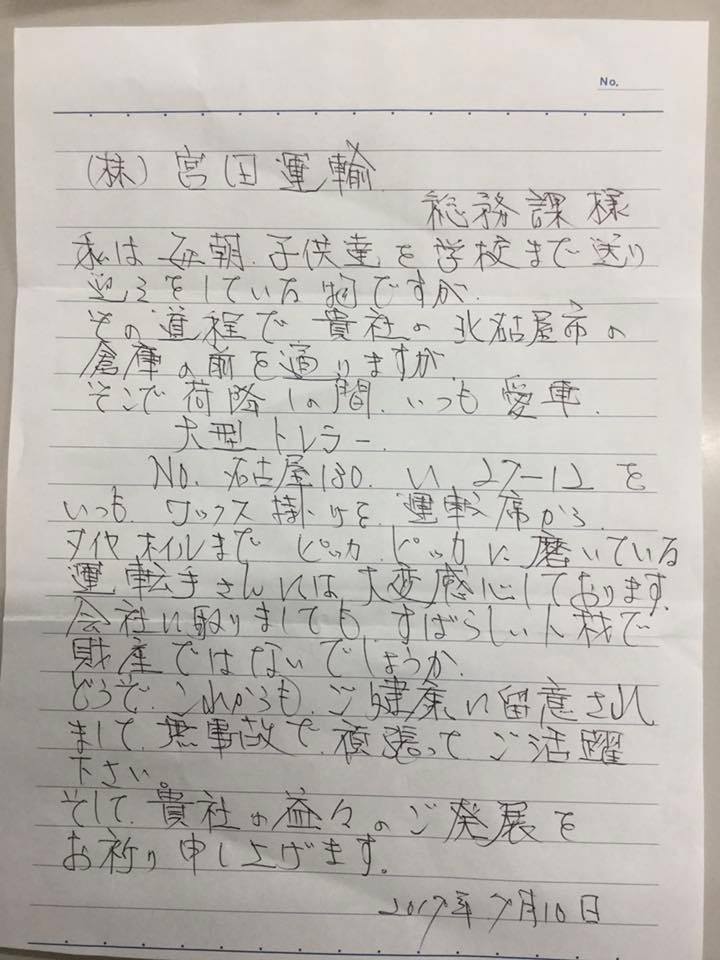 No.
(株)宮田運輸
総務課様
私は毎朝、子供達を学校まで送り
迎えをしている物ですが、
その道程で貴社の北名古屋市の
倉庫の前を通りますが、
そこで荷降しの間、いつも愛車、
大型トレーラー、
No. 名古屋130. い 27-12を
いつも、ワックス掛けを、運転席から、
タイヤホイルまでピッカピッカに磨いている
運転手さんには大変感心しております。
会社に取りましても、すばらしい人材で
財産ではないでしょうか、
どうぞ、これからも、ご健康に留意され
まして、無事故で、頑張って、ご活躍
下さい。
そして、貴社の益々のご発展を
お祈り申し上げます。
2017年7月10日